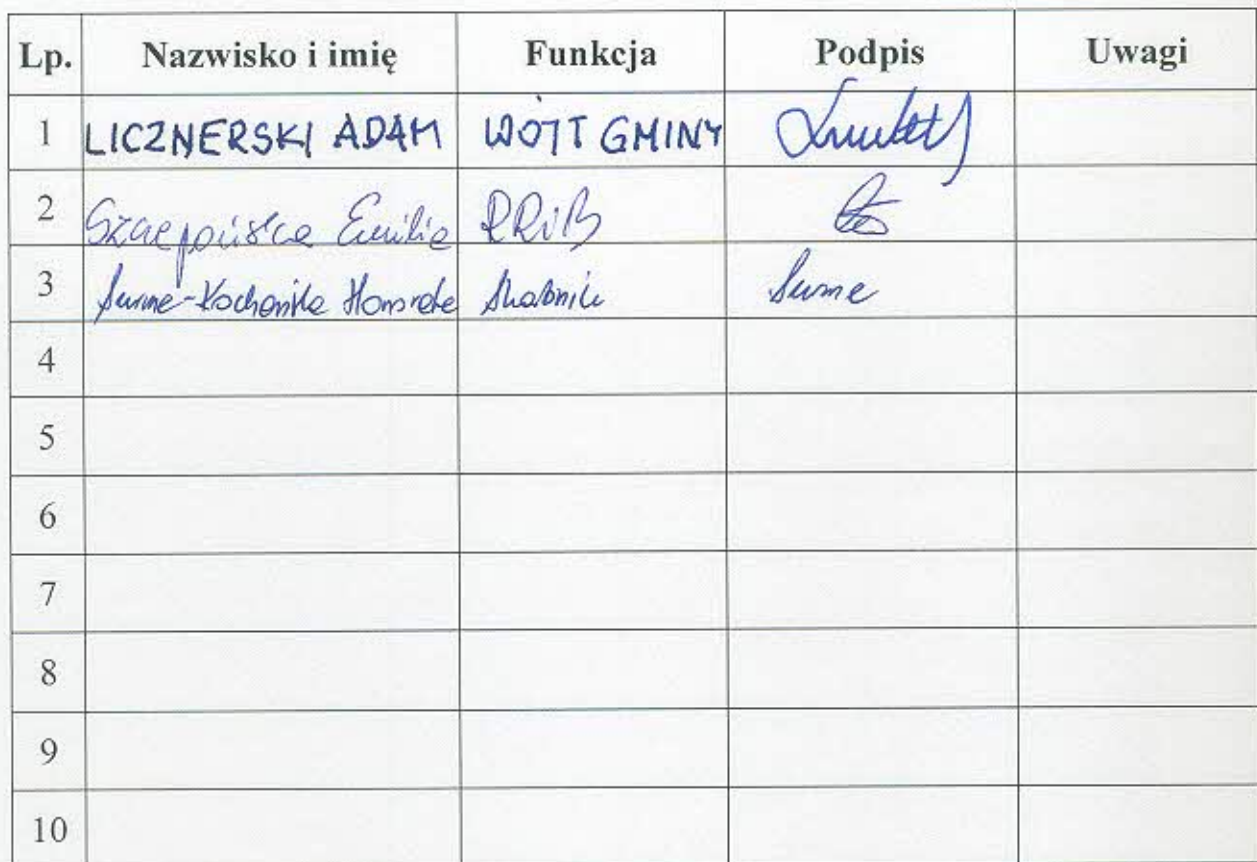 Lp. Nazwisko i imię Funkcja Podpis Uwagi
1 LICZNERSKI ADAM WÓJT GMINY
2 Szczepańska Emilia RRiB
3 Skarbnik
4
5
6
7
8
9
10